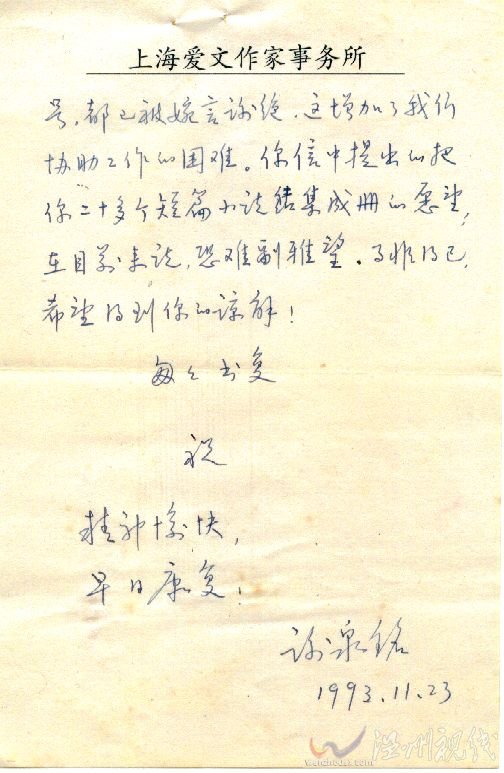 上海爱文作家事务所
号,都已被婉言谢绝,这增加了我们
协助工作的困难。你信中提出的把
你二十多个短篇小说结集成册的愿望,
在目前来说,恐难副雅望。事非得已,
希望得到你的谅解!
匆匆书复
祝
精神愉快,
早日康复!
谢泉铭
1993.11.23
温州视线
wenzhousx.com